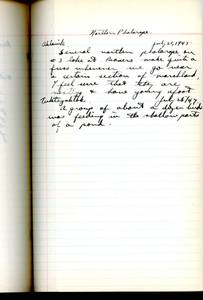 Northern Phalarope
July 25, 1947
Several northern phalaropes on
#3 lake at Bowers make quite a
fuss whenever we go near
a certain section of marshland.
I feel sure that they are
nesting & have young about.
July 28/47
A group of about a dozen birds
was feeding in the shallow parts
of a pond.